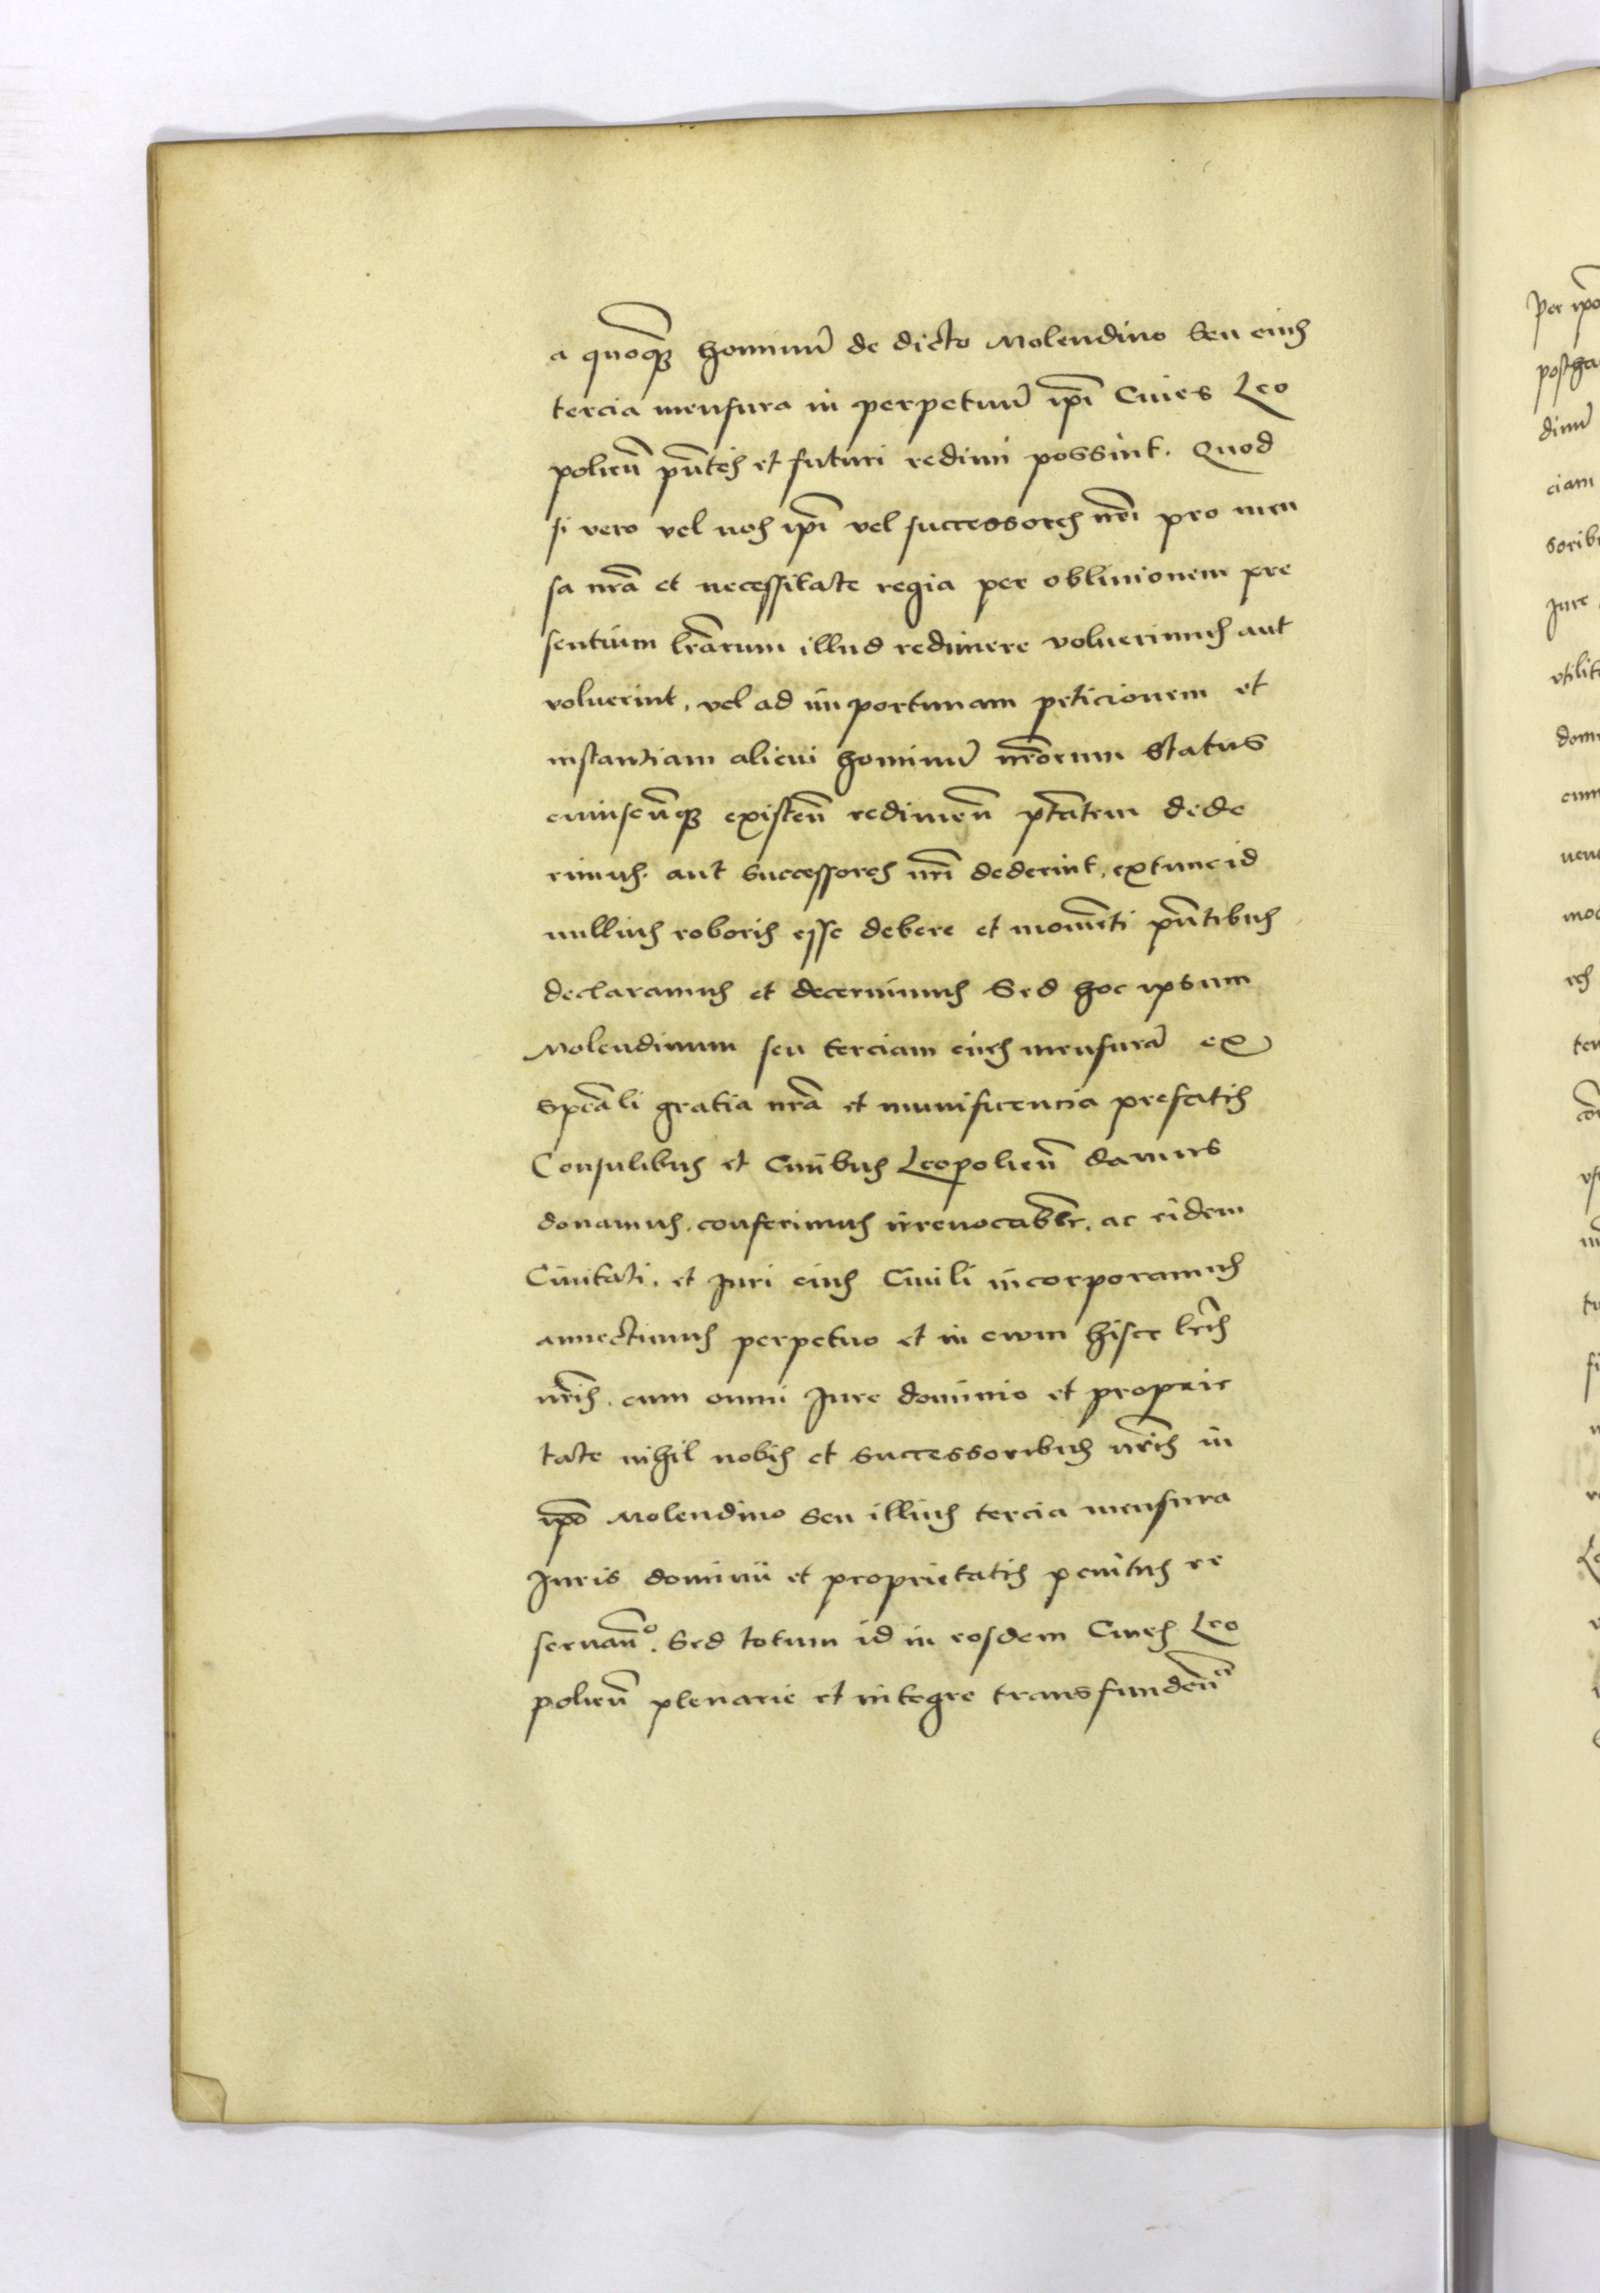 a quoq̃ꝫ hominũ de dicto Molendino Seu eius
tercia mensura in perpetuũ ip̃i Ciues Leo
polien̄ pñtes et futuri redimi possint. Quod
si vero vel nos ip̃i vel successores nr̃i pro men
sa nrã et necessitate regia per obliuionem pre
sentium lr̃arum illud redimere voluerimus aut
voluerint, vel ad importunam peticionem et
instantiam alicui hominũ nr̃orum Status
cuiuscũqꝫ existen̄ redimen̄ ptãtem dede
rimus. aut Successores nr̃i dederint, extunc id
nullius roboris esse debere et momẽti pñtibus
declaramus et decernimus Sed hoc ipsum
Molendinum seu terciam eius mensurã ex
Speãli gratia nrã et munificencia prefatis
Consulibus et Ciuibus Leopolien̄ damus
donamus. conferimus irreuocabl̃r. ac eidem
Ciuitati. et Juri eius Ciuili incorporamus
annectimus perpetuo et in ewm hisce lr̃is
nr̃is. cum omni Jure dominio et proprie
tate nihil nobis et Successoribus nr̃is in
ip̃o Molendino Seu illius tercia mensura
Juris dominii et proprietatis penitus re
seruan̄º. Sed totum id in eosdem Ciues Leo
polien̄ plenarie et integre transfunden̄
Per ip̃o
dinũ
ciam
Jure